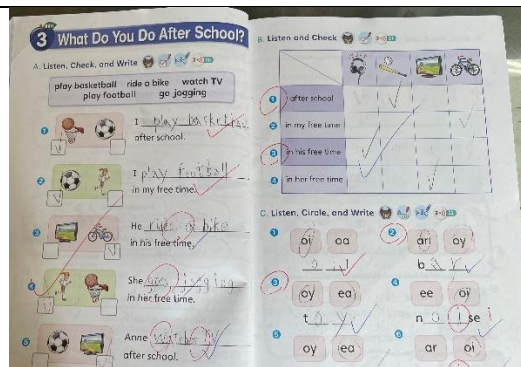 3 What Do You Do After School?
A. Listen, Check, and Write
play basketball ride a bike watch TV
play football go jogging
1 I play basketball
after school.
2 I play football
in my free time.
3 He rides a bike
in his free time.
4 She goes jogging
in her free time.
5 Anne watches TV
after school.
B. Listen and Check
1 after school
2 in my free time
3 in his free time
4 in her free time
C. Listen, Circle, and Write
1 oi oa
2 ar oy
bar
3 oy ea
toy
4 ee oi
noise
5 oy ea
6 ar oi